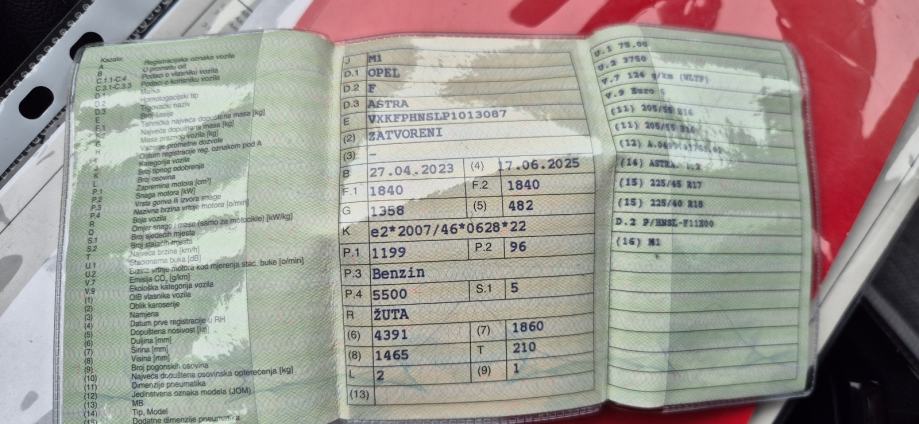 Kazalo:
A Registracijska oznaka vozila
B U prometu od
C.1.1-C.4 Podaci o vlasniku vozila
C.3.1-C.3.3 Podaci o korisniku vozila
D.1 Marka
D.2 Homologacijski tip
D.3 Trgovački naziv
E Broj šasije
F.1 Tehnička najveća dopuštena masa [kg]
Najveća dopuštena masa [kg]
Masa praznog vozila [kg]
Važenje prometne dozvole
Datum registracije reg. oznakom pod A
J Kategorija vozila
K Broj tipnog odobrenja
L Broj osovina
P.1 Zapremina motora [cm³]
P.2 Snaga motora [kW]
P.3 Vrsta goriva ili izvora snage
P.4 Nazivna brzina vrtnje motora [o/min]
R Boja vozila
Q Omjer snage i mase (samo za motocikle) [kW/kg]
S.1 Broj sjedećih mjesta
S.2 Broj stajaćih mjesta
T Najveća brzina [km/h]
U.1 Stacionarna buka [dB]
U.2 Brzina vrtnje motora kod mjerenja stac. buke [o/min]
V.7 Emisija CO₂ [g/km]
V.9 Ekološka kategorija vozila
(1) OIB vlasnika vozila
(2) Oblik karoserije
(3) Namjena
(4) Datum prve registracije u RH
(5) Dopuštena nosivost [kg]
(6) Duljina [mm]
(7) Širina [mm]
(8) Visina [mm]
(9) Broj pogonskih osovina
(10) Najveća dopuštena osovinska opterećenja [kg]
(11) Dimenzije pneumatika
(12) Jedinstvena oznaka modela (JOM)
(13) MB
(14) Tip, Model
(15) Dodatne dimenzije pneumatika
J M1
D.1 OPEL
D.2 F
D.3 ASTRA
E VXKFPHNSLP1013087
(2) ZATVORENI
(3) –
B 27.04.2023 (4) 17.06.2025
F.1 1840 F.2 1840
G 1358 (5) 482
K e2*2007/46*0628*22
P.1 1199 P.2 96
P.3 Benzin
P.4 5500 S.1 5
R ŽUTA
(6) 4391 (7) 1860
(8) 1465 T 210
L 2 (9) 1
(13)
U.1 75.00
U.2 3750
V.7 126 g/km (WLTP)
V.9 Euro 6
(11) 205/55 R16
(11) 205/55 R16
(12)
(14) ASTRA 1.2
(15) 225/45 R17
(15) 225/40 R18
D.2 P/HNSL-F11H00
(16) M1